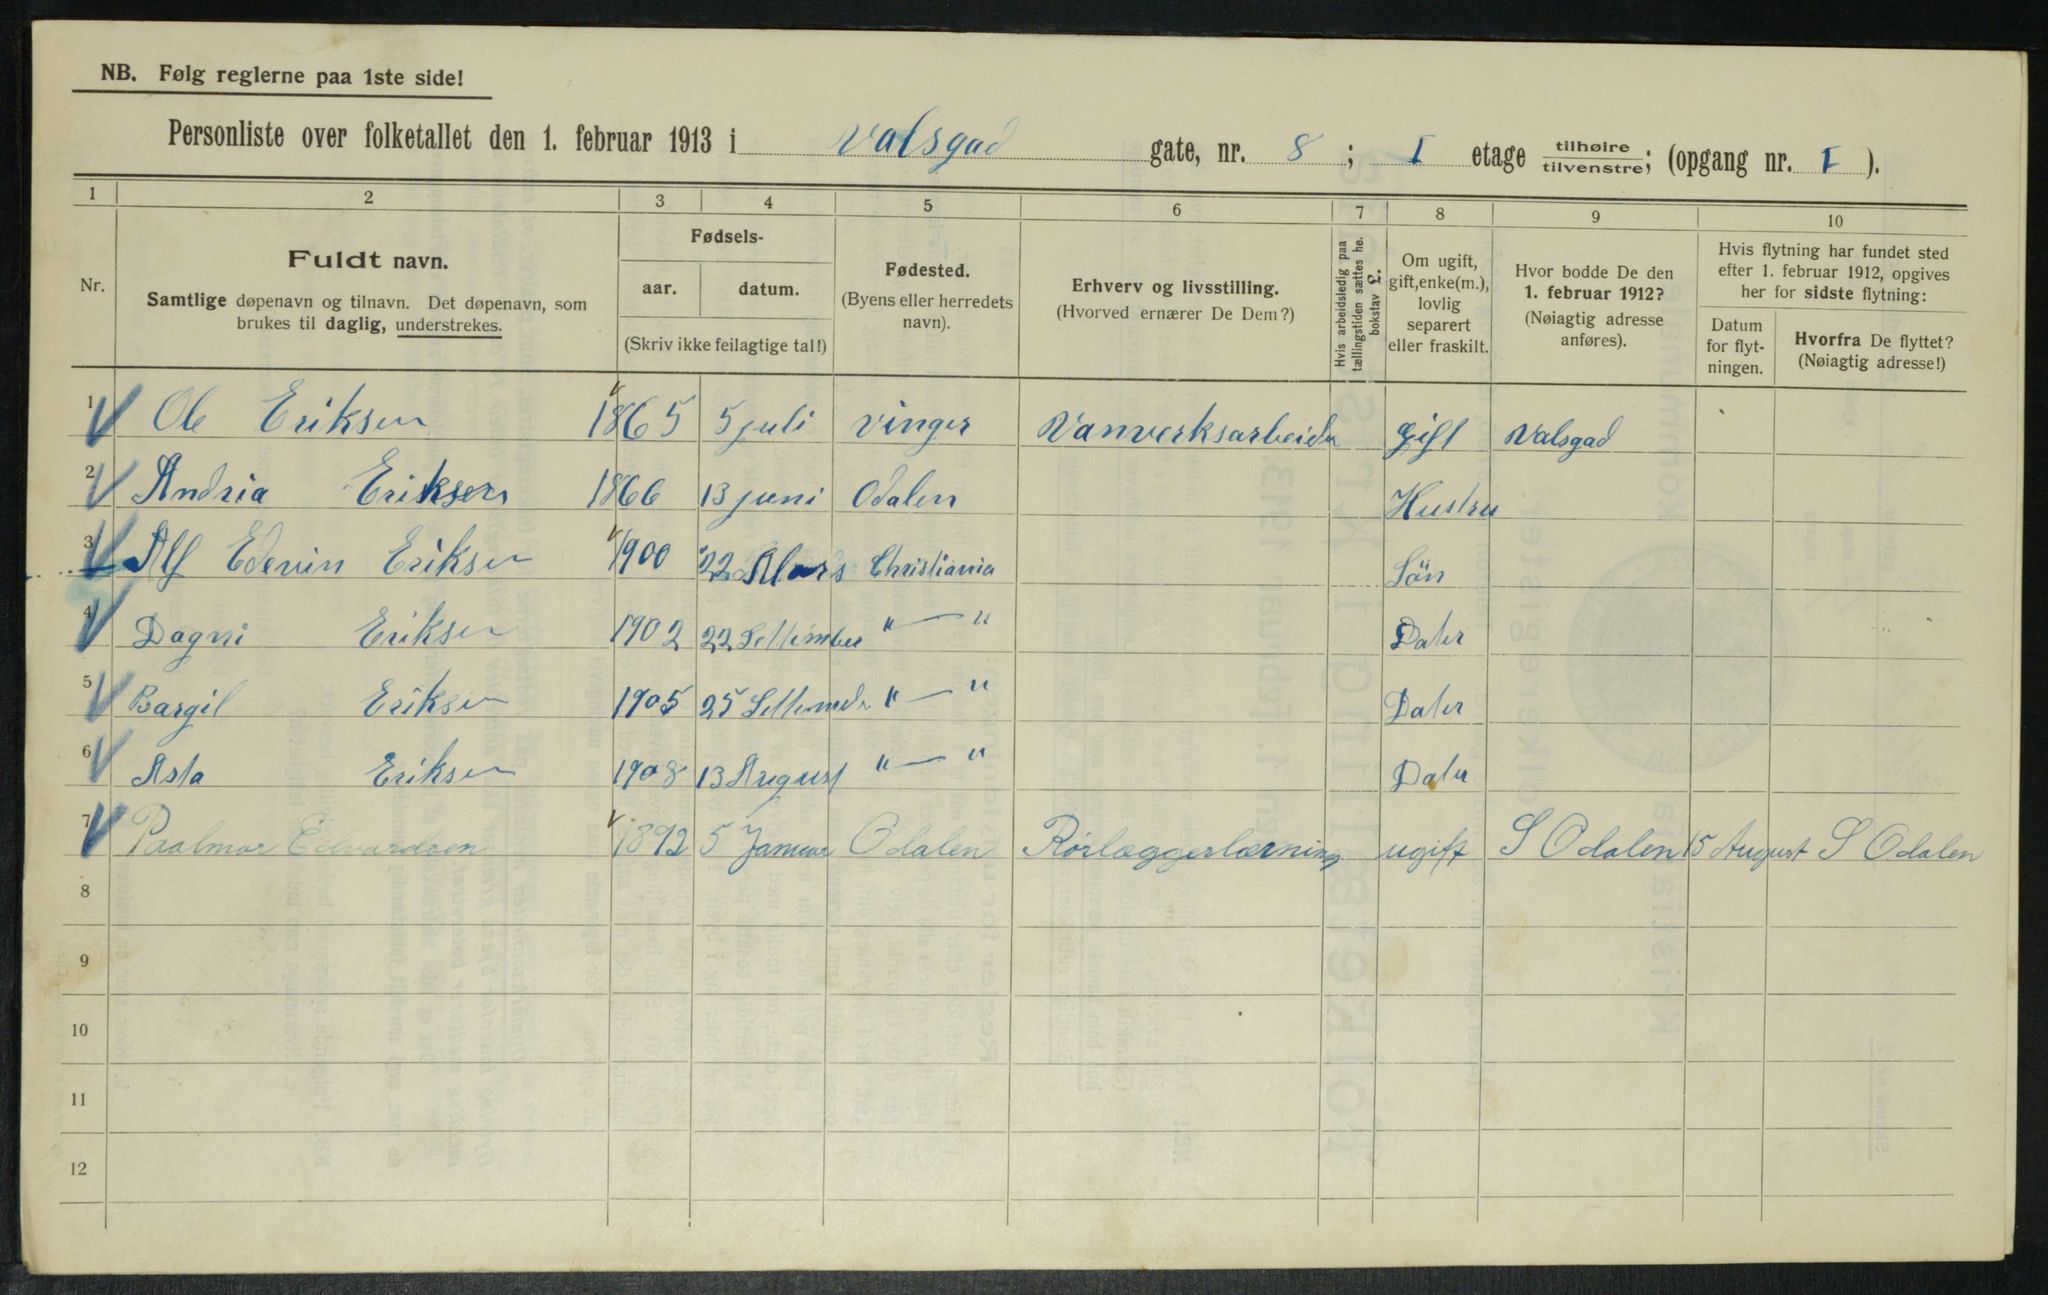 NB. Følg reglerne paa 1ste side!
Personliste over folketallet den 1. februar 1913 i Valsgad gate, nr. 8 ; I etage tilhøire/tilvenstre; (opgang nr. I ).
1 2 3 4 5 6 7 8 9 10
Nr.
Fuldt navn.
Samtlige døpenavn og tilnavn. Det døpenavn, som
brukes til daglig, understrekes.
Fødsels-
aar. datum.
(Skriv ikke feilagtige tal!)
Fødested.
(Byens eller herredets
navn).
Erhverv og livsstilling.
(Hvorved ernærer De Dem?)
Hvis arbeidsledig paa
tællingstiden sættes he.
bokstav £.
Om ugift,
gift, enke(m.),
lovlig
separert
eller fraskilt.
Hvor bodde De den
1. februar 1912?
(Nøiagtig adresse
anføres).
Hvis flytning har fundet sted
efter 1. februar 1912, opgives
her for sidste flytning:
Datum
for flyt-
ningen.
Hvorfra De flyttet?
(Nøiagtig adresse!)
1 Ole Eriksen 1865 5 juli Vinger Vanverksarbeider gift Valsgad
2 Andria Eriksen 1866 13 juni Odalen Hustru
3 Alf Edevin Eriksen 1900 22 Mars Christiania Sön
4 Dagni Eriksen 1902 22 Settember " — " Dater
5 Bargil Eriksen 1905 25 Settember " — " Dater
6 Asta Eriksen 1908 13 August " — " Dater
7 Paalmar Edvardsen 1892 5 Januar Odalen Rörlæggerlærning ugift S Odalen 15 August S Odalen
8
9
10
11
12